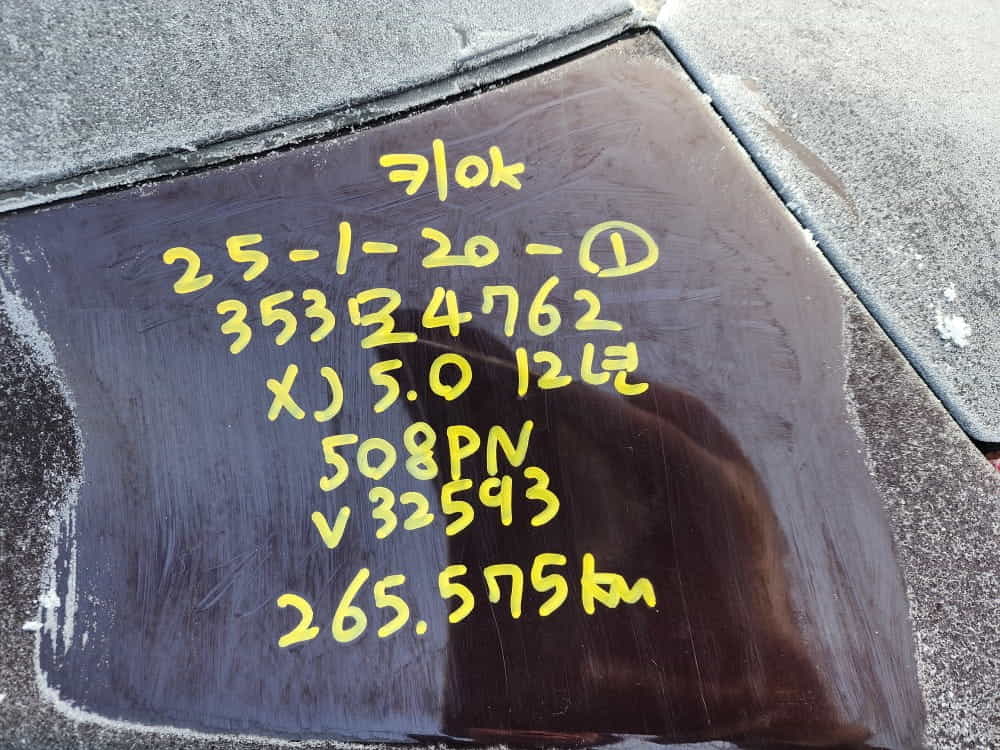 키ok
25-1-20-①
353모4762
XJ 5.0 12년
508PN
V32593
265.575km